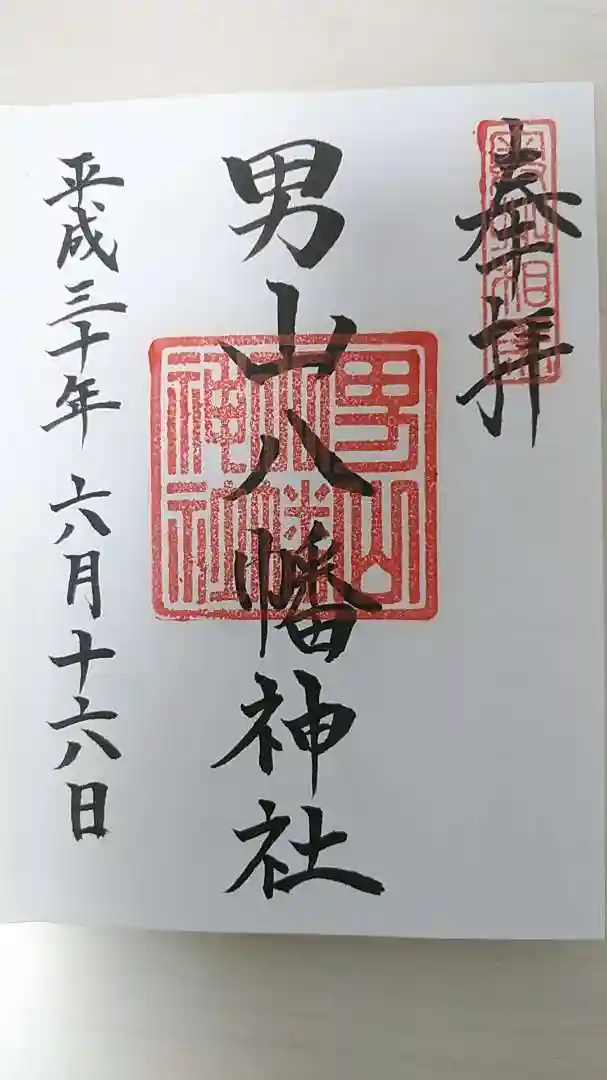 奉拝
男山八幡神社
男山八幡神社
平成三十年六月十六日